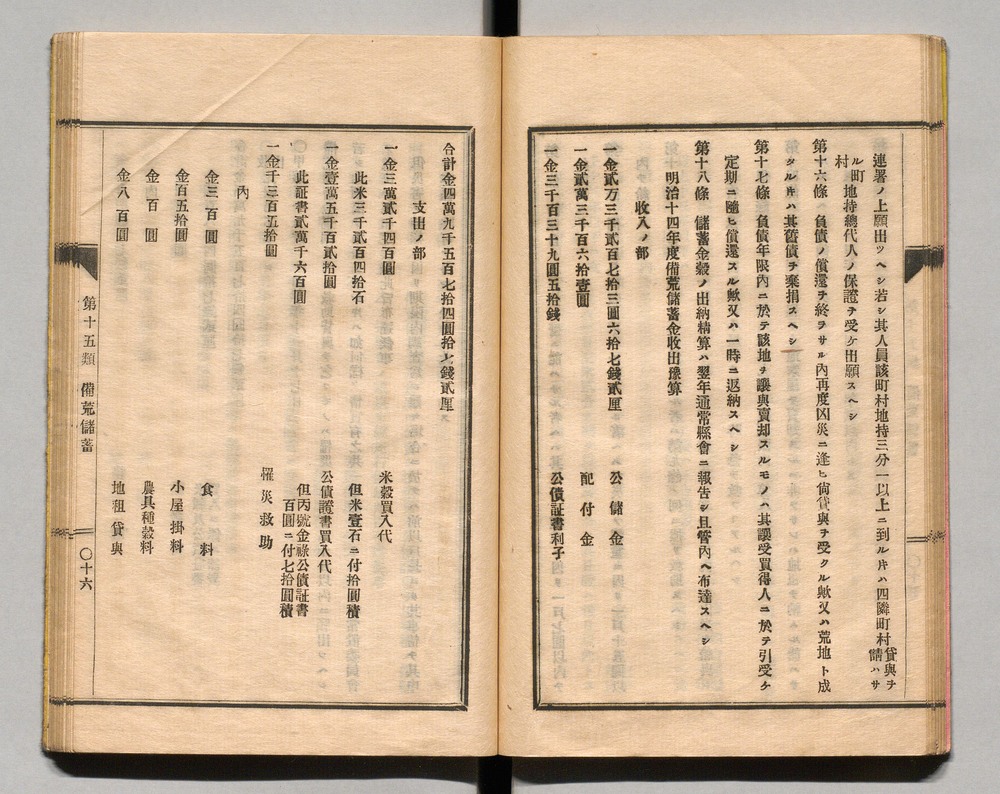 連署ノ上願出ツヘシ若シ其人員該町村地持三分一以上ニ到ル片ハ四隣町村貸與ヲ請ハサ
ル町村地持總代人ノ保證ヲ受ケ出願スヘシ
第十六條　負債ノ償還ヲ終ラサル內再度凶災ニ逢ヒ尙貸與ヲ受クル歟又ハ荒地ト成
タル片ハ其舊債ヲ棄捐スヘシ
第十七條　負債年限內ニ於テ該地ヲ讓與賣却スルモノハ其讓受買得人ニ於テ引受ケ
定期ニ隨ヒ償還スル歟又ハ一時ニ返納スヘシ
第十八條　儲蓄金穀ノ出納精算ハ翌年通常縣會ニ報告シ且管內ヘ布達スヘシ
明治十四年度備荒儲蓄金收出豫算
收入ノ部
一金貳万三千貳百七拾三圓六拾七錢貳厘　公儲金
一金貳萬三千百六拾壹圓　配付金
一金三千百三十九圓五拾錢　公債証書利子
合計金四萬九千五百七拾四圓拾七錢貳厘
支出ノ部
一金三萬貳千四百圓　米穀買入代
此米三千貳百四拾石　但米壹石ニ付拾圓積
一金壹萬五千百貳拾圓　公債證書買入代
此証書貳萬千六百圓　但丙號金祿公債証書百圓ニ付七拾圓積
一金千三百五拾圓　罹災救助
內
金三百圓　食料
金百五拾圓　小屋掛料
金百圓　農具種穀料
金八百圓　地租貸與
第十五類　備荒儲蓄
〇十六